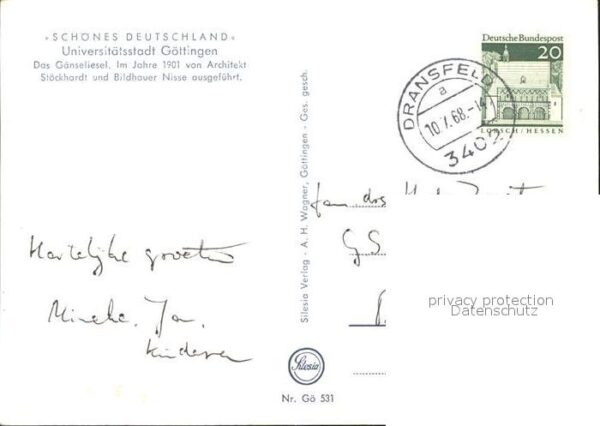 »SCHÖNES DEUTSCHLAND«
Universitätsstadt Göttingen
Das Gänseliesel. Im Jahre 1901 von Architekt
Stöckhardt und Bildhauer Nisse ausgeführt.
Deutsche Bundespost
20
LORSCH/HESSEN
DRANSFELD
a
10.7.68.-14
3402
Silesia Verlag - A. H. Wagner, Göttingen - Ges. gesch.
Hartelijke groeten
Mineke, Jan,
kinderen
Fam drs
privacy protection
Datenschutz
Silesia
Nr. Gö 531